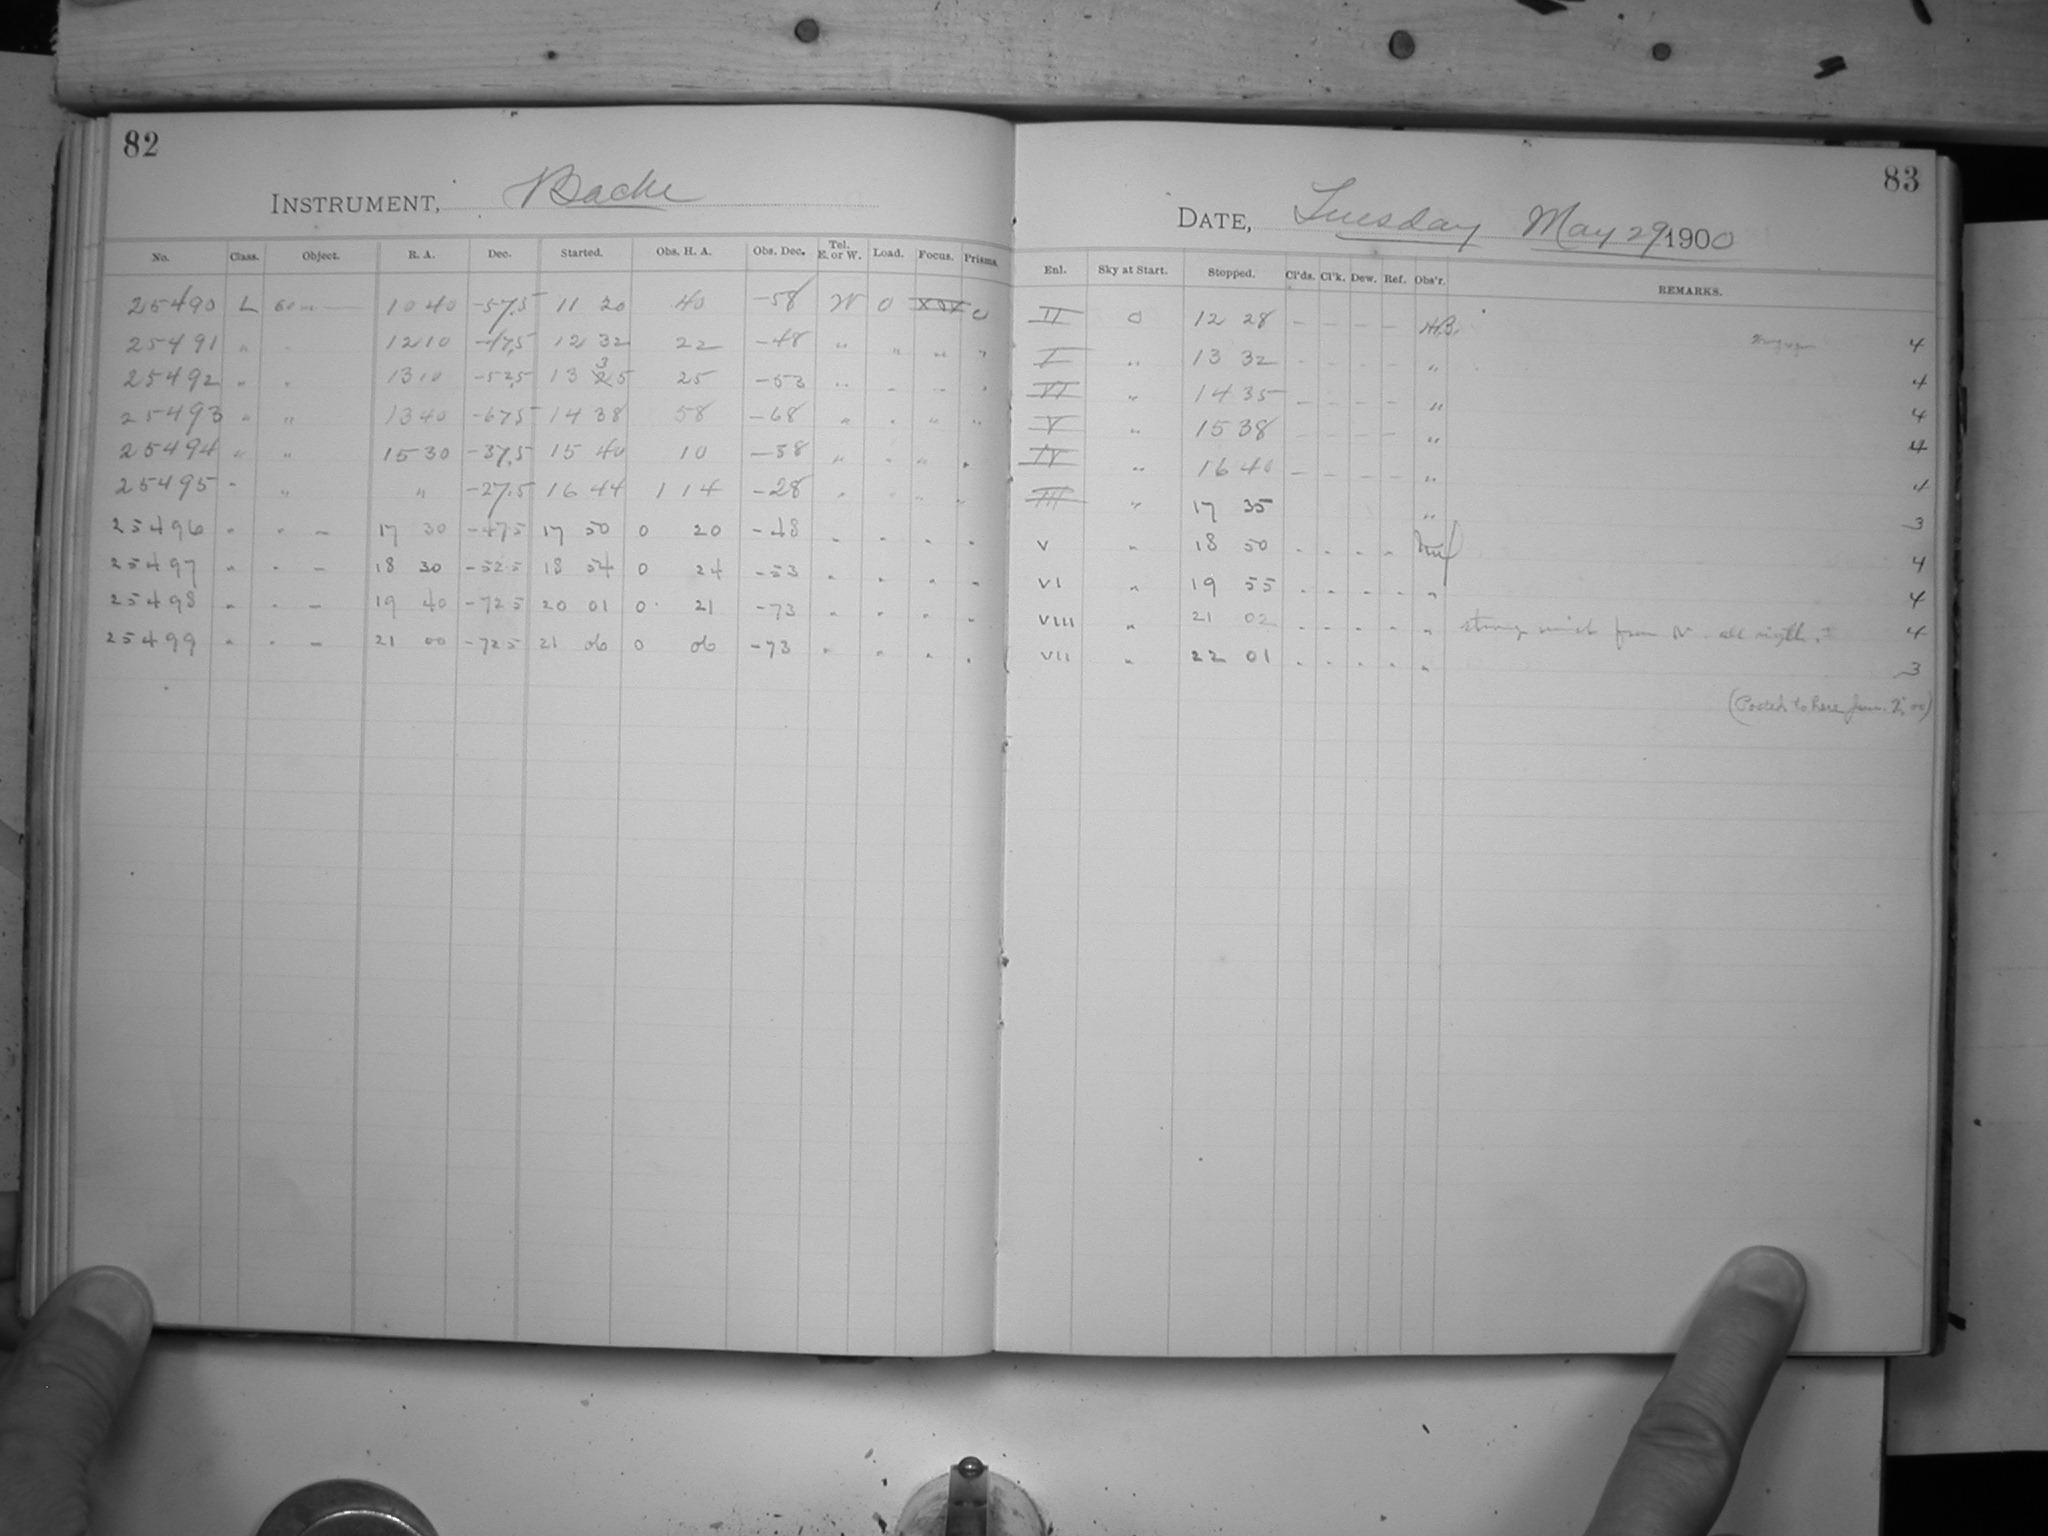 82
INSTRUMENT, Bache
No. Class. Object. R. A. Dec. Started. Obs. H. A. Obs. Dec. Tel. E. or W. Load. Focus. Prisms.
25490 L 60m 10 40 -57.5 11 20 40 -58 W 0 0
25491 " " 12 10 -47.5 12 32 22 -48 " " " "
25492 " " 13 10 -52.5 13 35 25 -53 " " " "
25493 " " 13 40 -67.5 14 38 58 -68 " " " "
25494 " " 15 30 -37.5 15 40 10 -38 " " " "
25495 " " " -27.5 16 44 1 14 -28 " " " "
25496 " " 17 30 -47.5 17 50 0 20 -48 " " " "
25497 " " 18 30 -52.5 18 54 0 24 -53 " " " "
25498 " " 19 40 -72.5 20 01 0 21 -73 " " " "
25499 " " 21 00 -72.5 21 06 0 06 -73 " " " "
83
DATE, Tuesday May 29 1900
Enl. Sky at Start. Stopped. Cl'ds. Cl'k. Dew. Ref. Obs'r. REMARKS.
II 0 12 28 - - - - 4
I " 13 32 - - - - " 4
VI " 14 35 - - - - " 4
V " 15 38 - - - - " 4
IV " 16 40 - - - - " 4
III " 17 35 " 3
V " 18 50 - - - - 4
VI " 19 55 - - - - " 4
VIII " 21 02 - - - - " strong wind from N. all night. 4
VII " 22 01 - - - - " 3
(Posted to here Jun. 2, 00)